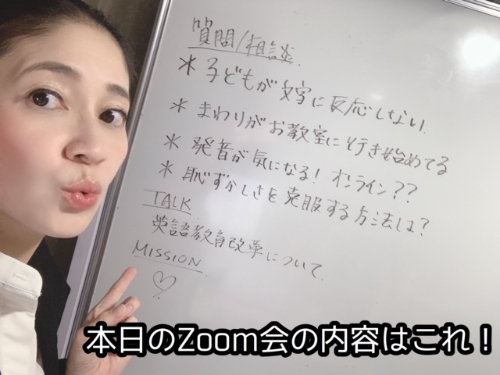 質問/相談
* 子どもが文字に反応しない
* まわりがお教室に行き始めてる
* 発音が気になる! オンライン??
* 恥ずかしさを克服する方法は?
TALK
英語教育改革について
MISSION
♡
本日のZoom会の内容はこれ!